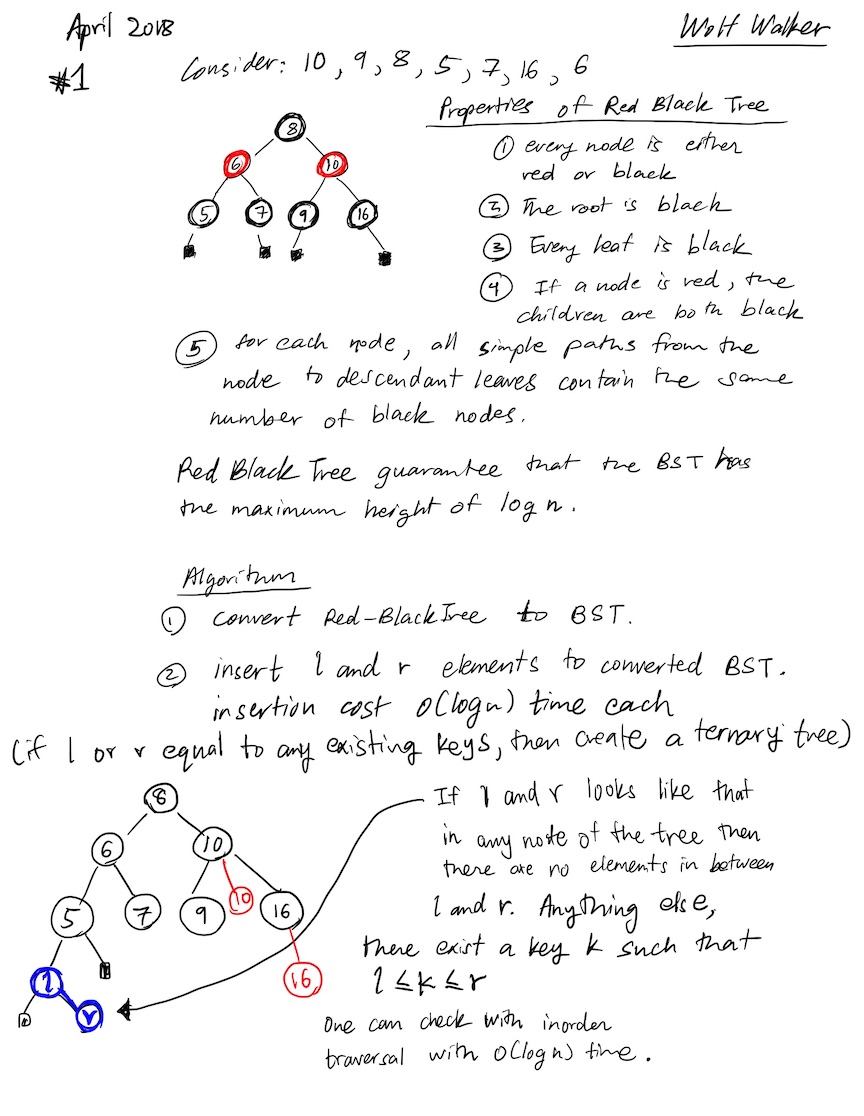 April 2018
Wolf Walker
#1
Consider: 10, 9, 8, 5, 7, 16, 6
Properties of Red Black Tree
8
6 10
5 7 9 16
① every node is either
red or black
② The root is black
③ Every leaf is black
④ If a node is red, the
children are both black
⑤ for each node, all simple paths from the
node to descendant leaves contain the same
number of black nodes.
Red Black Tree guarantee that the BST has
the maximum height of log n.
Algorithm
① convert Red-Black Tree to BST.
② insert l and r elements to converted BST.
insertion cost O(log n) time each
(if l or r equal to any existing keys, then create a ternary tree)
8
6 10
5 7 9 10 16
l 16
r
If l and r looks like that
in any node of the tree then
there are no elements in between
l and r. Anything else,
there exist a key k such that
l ≤ k ≤ r
One can check with inorder
traversal with O(log n) time.